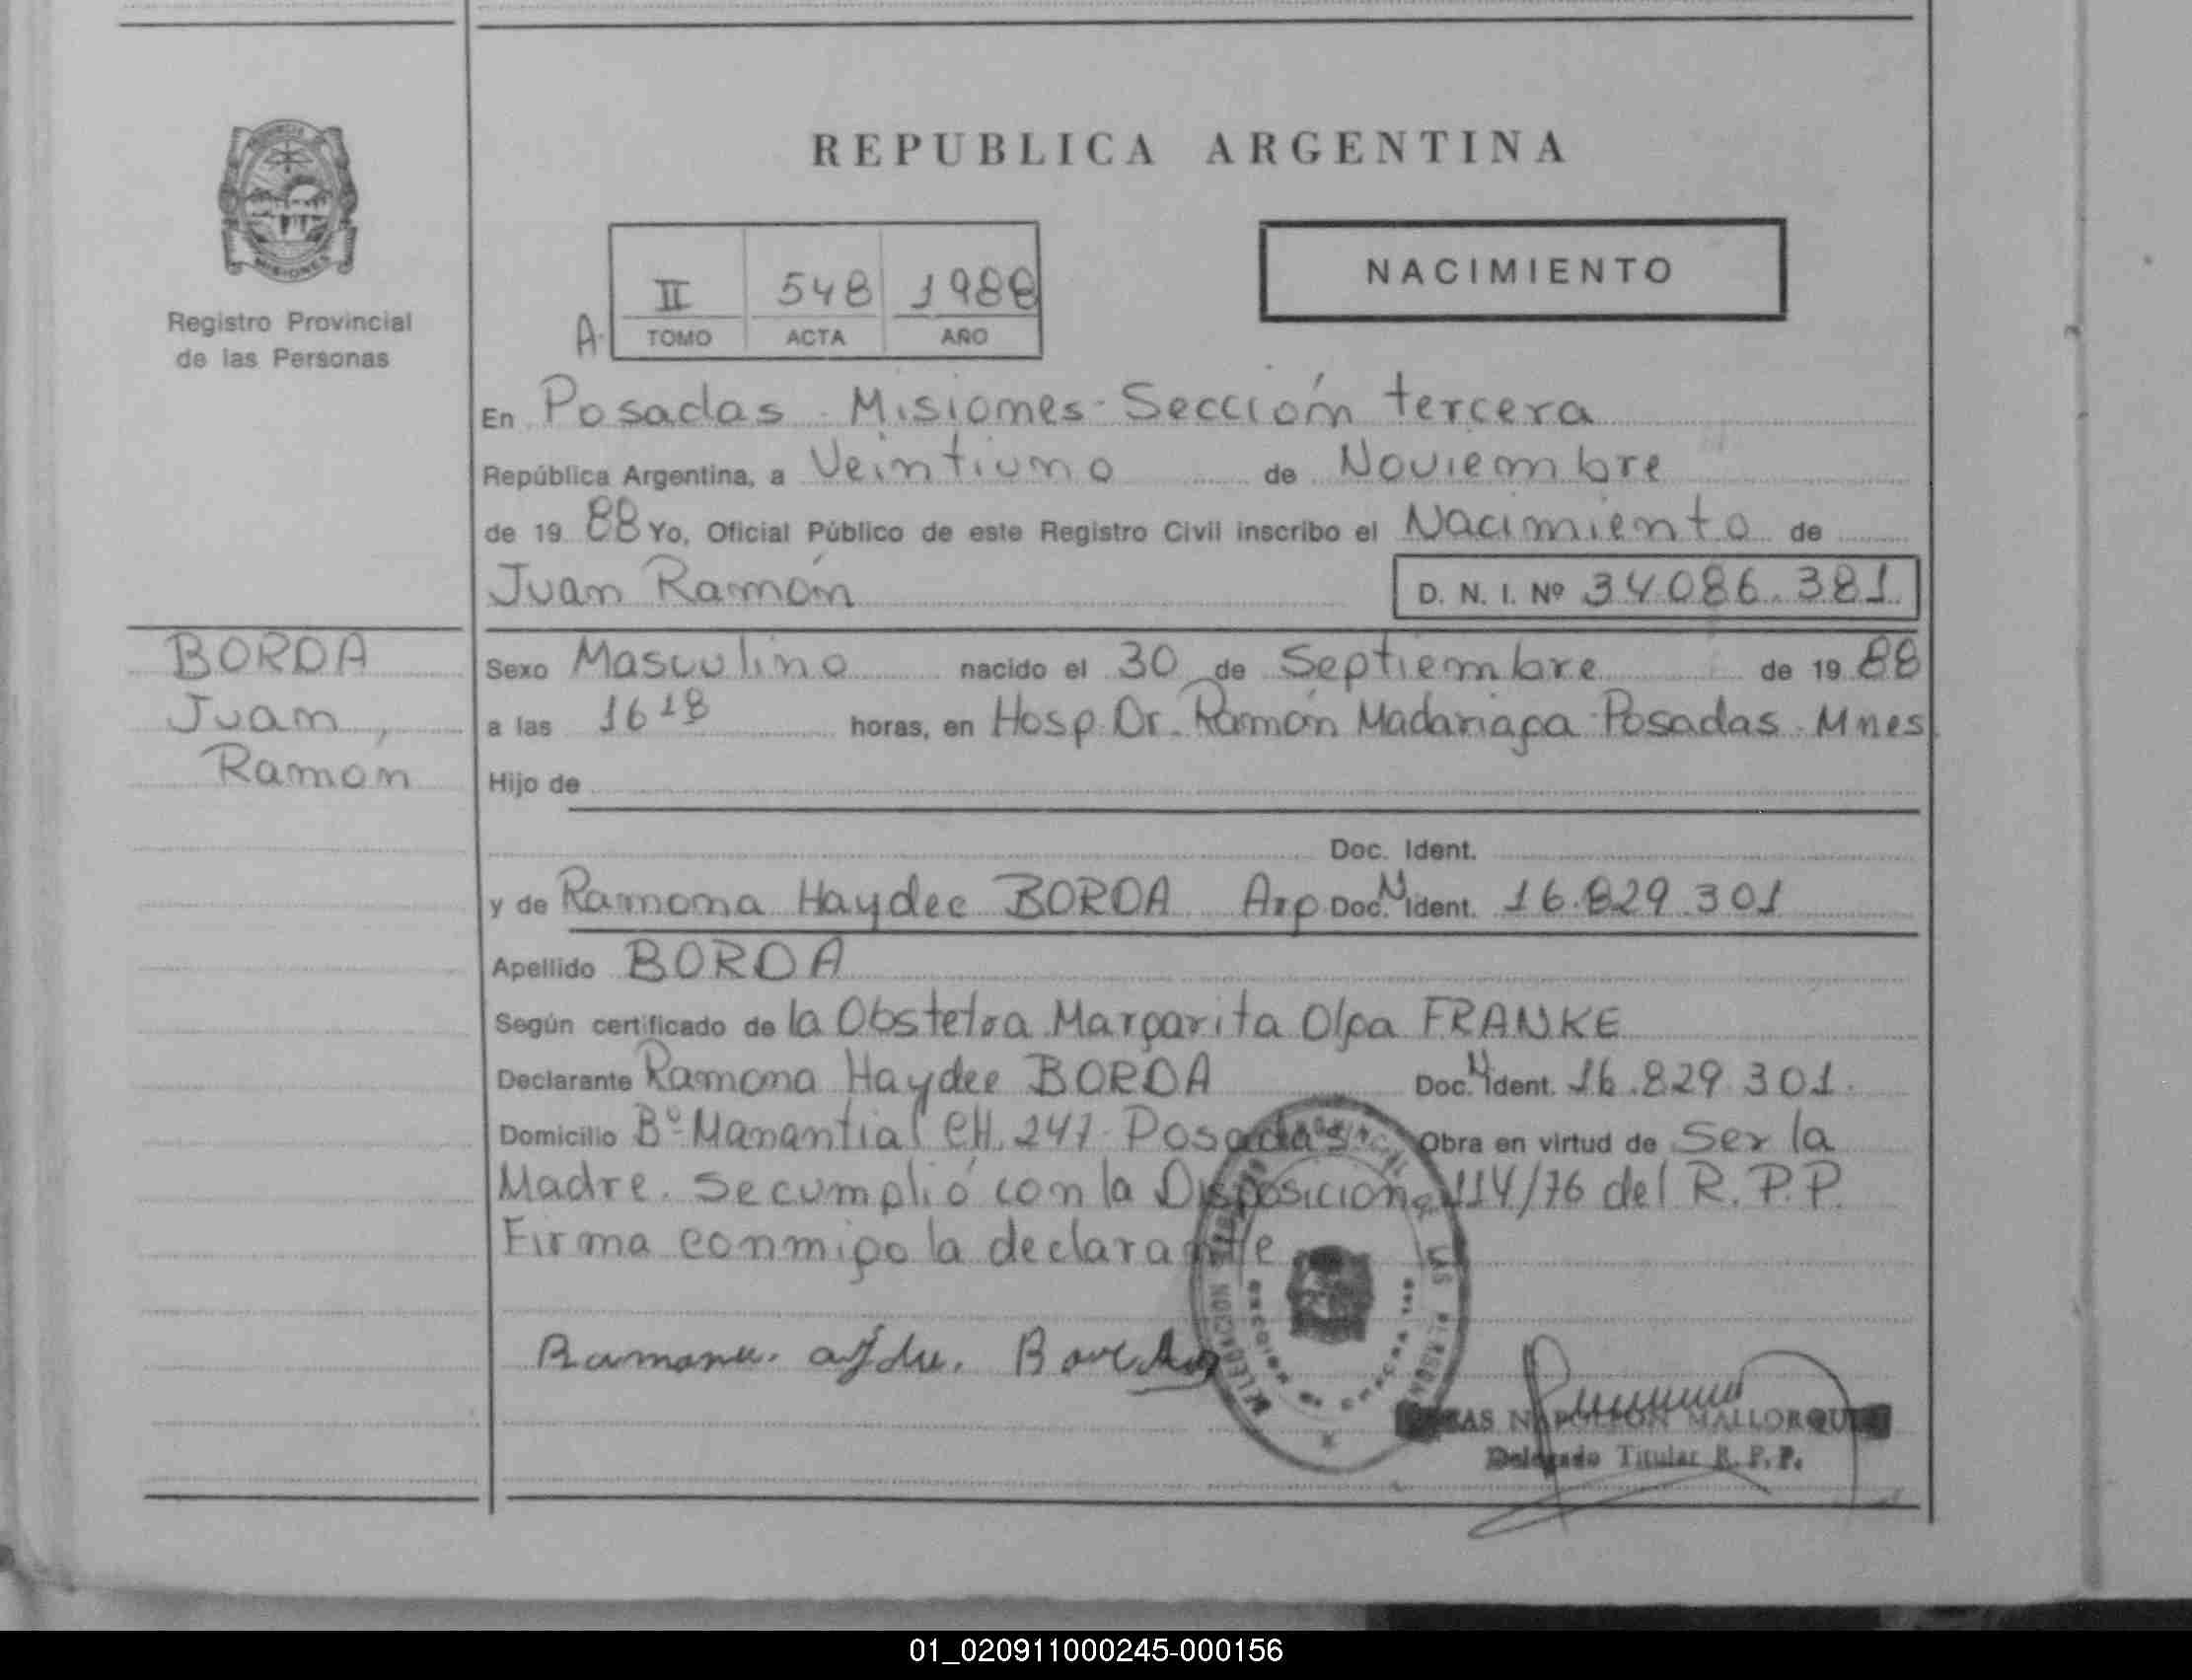 REPUBLICA ARGENTINA
PROVINCIA
MISIONES
Registro Provincial
de las Personas
II 548 1988
A. TOMO ACTA AÑO
NACIMIENTO
En Posadas - Misiones - Sección tercera
República Argentina, a Veintiuno de Noviembre
de 19 88 Yo, Oficial Público de este Registro Civil inscribo el Nacimiento de
Juan Ramón D. N. I. Nº 34.086.381
BORDA
Juan,
Ramon
Sexo Masculino nacido el 30 de Septiembre de 19 88
a las 16 18 horas, en Hosp. Dr. Ramón Madariaga - Posadas - Mnes
Hijo de
Doc. Ident.
y de Ramona Haydee BORDA Arg Doc. N Ident. 16.829.301
Apellido BORDA
Según certificado de la Obstetra Margarita Olga FRANKE
Declarante Ramona Haydee BORDA Doc. N Ident. 16.829.301.
Domicilio Bº Manantial CH. 247 - Posadas Obra en virtud de Ser la
Madre. Se cumplió con la Disposicion 114/76 del R.P.P.
Firma conmigo la declarante
NAPOLEON MALLORQUIN
Delegado Titular R.P.P.
01_020911000245-000156